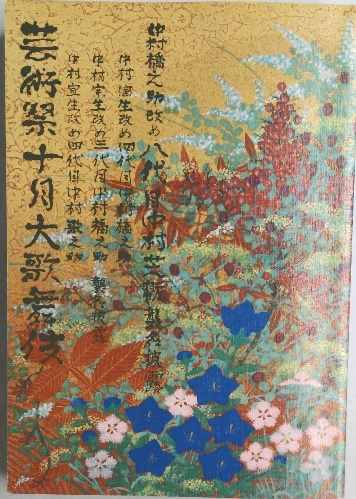 中村橋之助改め八代目中村芝翫襲名披露
中村国生改め四代目中村橋之助
中村宗生改め三代目中村福之助
中村宜生改め四代目中村歌之助
襲名披露
芸術祭十月大歌舞伎